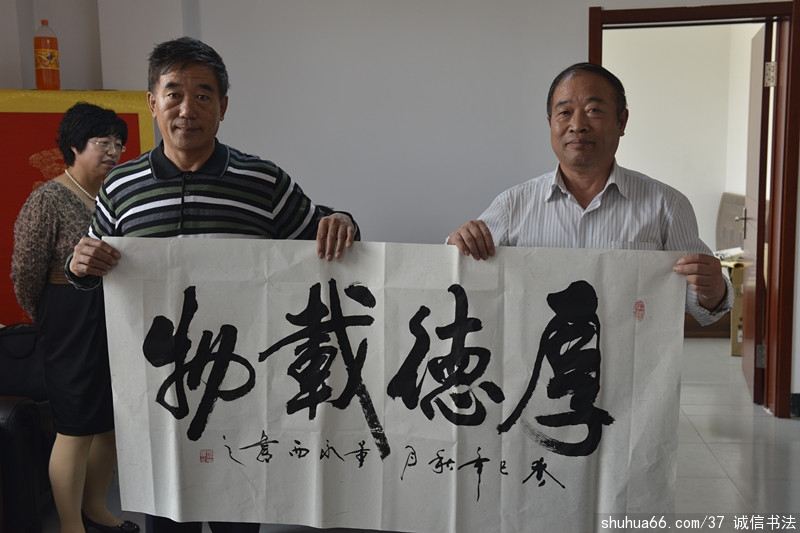 厚德載物
癸巳年秋月董永西書之
shuhua66.com/37 诚信书法